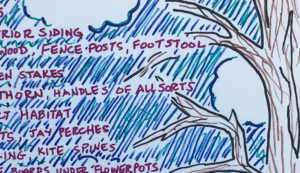 RIOR SIDING
WOOD, FENCE POSTS, FOOTSTOOL
EN STAKES
THORN, HANDLES OF ALL SORTS
CT HABITAT
TS, JAY PERCHES
ING, KITE SPINES
BOARDS UNDER FLOWERPOTS